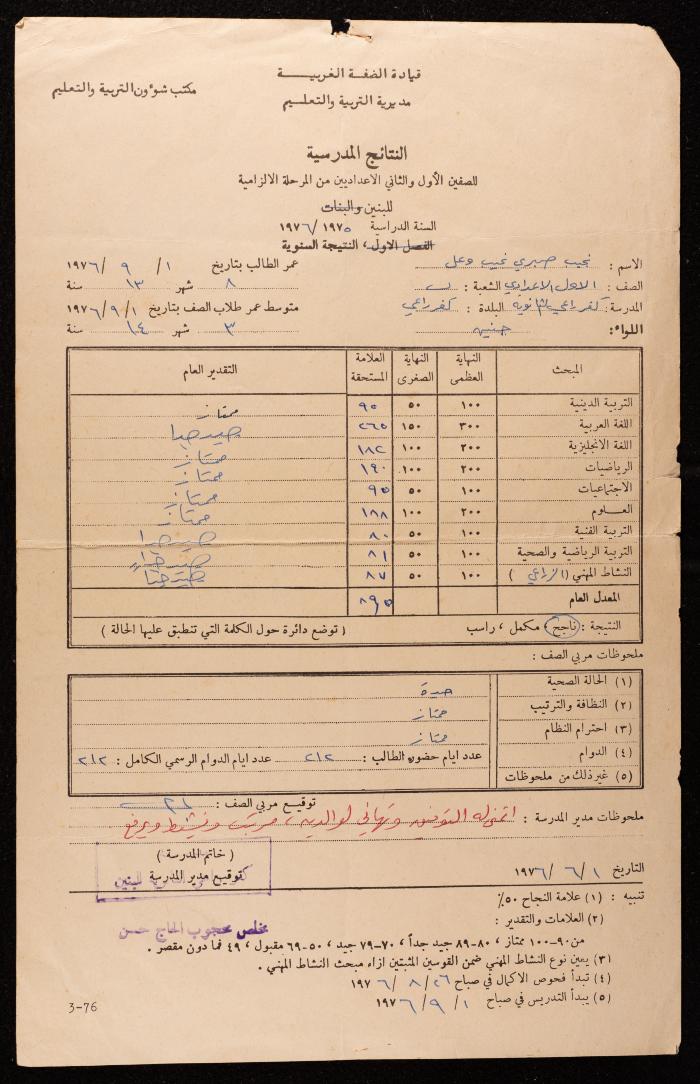 قيادة الضفة الغربية
مديرية التربية والتعليم
مكتب شؤون التربية والتعليم
النتائج المدرسية
للصفين الأول والثاني الاعداديين من المرحلة الالزامية
للبنين والبنات
السنة الدراسية ١٩٧٥/١٩٧٦
الفصل الاول، النتيجة السنوية
الاسم : نجيب صبري نجيب وعل عمر الطالب بتاريخ ١/ ٩ /١٩٧٦
الصف : الاول الاعدادي الشعبة : ب ٨ شهر ١٣ سنة
المدرسة : كفر راعي الثانوية البلدة : كفر راعي متوسط عمر طلاب الصف بتاريخ ١/٩/١٩٧٦
اللواء: جنين ٣ شهر ١٤ سنة
المبحث النهاية العظمى النهاية الصغرى العلامة المستحقة التقدير العام
التربية الدينية ١٠٠ ٥٠ ٩٥ ممتاز
اللغة العربية ٣٠٠ ١٥٠ ٢٦٥ جيد جدا
اللغة الانجليزية ٢٠٠ ١٠٠ ١٨٢ ممتاز
الرياضيات ٢٠٠ ١٠٠ ١٩٠ ممتاز
الاجتماعيات ١٠٠ ٥٠ ٩٥ ممتاز
العلوم ٢٠٠ ١٠٠ ١٨٨ ممتاز
التربية الفنية ١٠٠ ٥٠ ٨٠ جيد جدا
التربية الرياضية والصحية ١٠٠ ٥٠ ٨١ جيد جداً
النشاط المهني (الزراعي) ١٠٠ ٥٠ ٨٧ جيد جداً
المعدل العام ٨٩,٥
النتيجة : ناجح، مكمل، راسب (توضع دائرة حول الكلمة التي تنطبق عليها الحالة)
ملحوظات مربي الصف :
(١) الحالة الصحية جيدة
(٢) النظافة والترتيب ممتاز
(٣) احترام النظام ممتاز
(٤) الدوام عدد ايام حضور الطالب : ٢١٢ عدد ايام الدوام الرسمي الكامل : ٢١٢
(٥) غير ذلك من ملحوظات
توقيع مربي الصف :
ملحوظات مدير المدرسة : اتمنى له التوفيق وتهاني لوالديه، مرتب ونشيط ويرفع
(خاتم المدرسة)
التاريخ ١/ ٦ /١٩٧٦
توقيع مدير المدرسة
للبنين
مخلص محجوب الحاج حسن
تنبيه : (١) علامة النجاح ٥٠٪
(٢) العلامات والتقدير :
من ٩٠-١٠٠ ممتاز، ٨٠-٨٩ جيد جداً، ٧٠-٧٩ جيد، ٥٠-٦٩ مقبول، ٤٩ فما دون مقصر.
(٣) يعين نوع النشاط المهني ضمن القوسين المثبتين ازاء مبحث النشاط المهني.
(٤) تبدأ فحوص الاكمال في صباح ٢٦/ ٨ /١٩٧٦
(٥) يبدأ التدريس في صباح ١/ ٩ /١٩٧٦
3-76